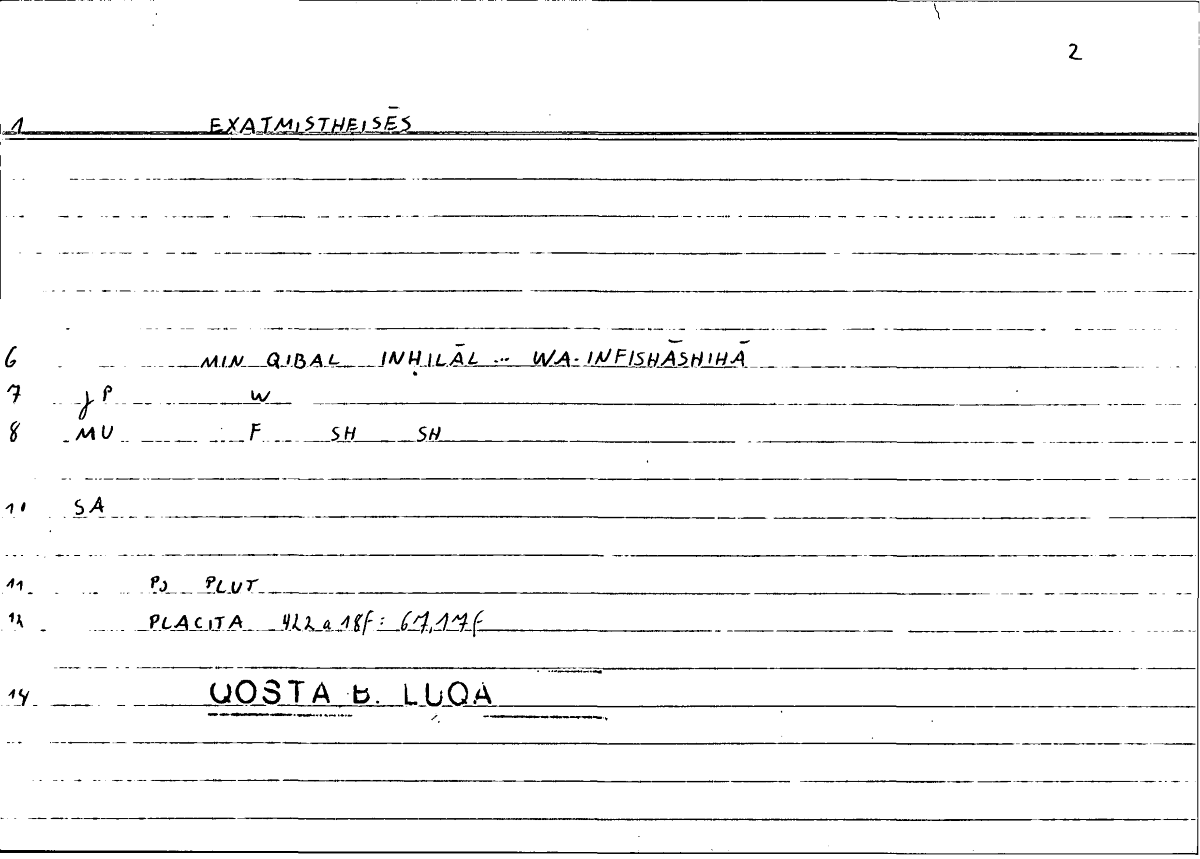 2
1 EXATMISTHEISĒS
6 MIN QIBAL INḤILĀL ... WA-INFISHĀSHIHĀ
7 P W
8 MU F SH SH
10 SA
11 PS PLUT
12 PLACITA 422a18f: 67,17f
14 QOSTA B. LUQA